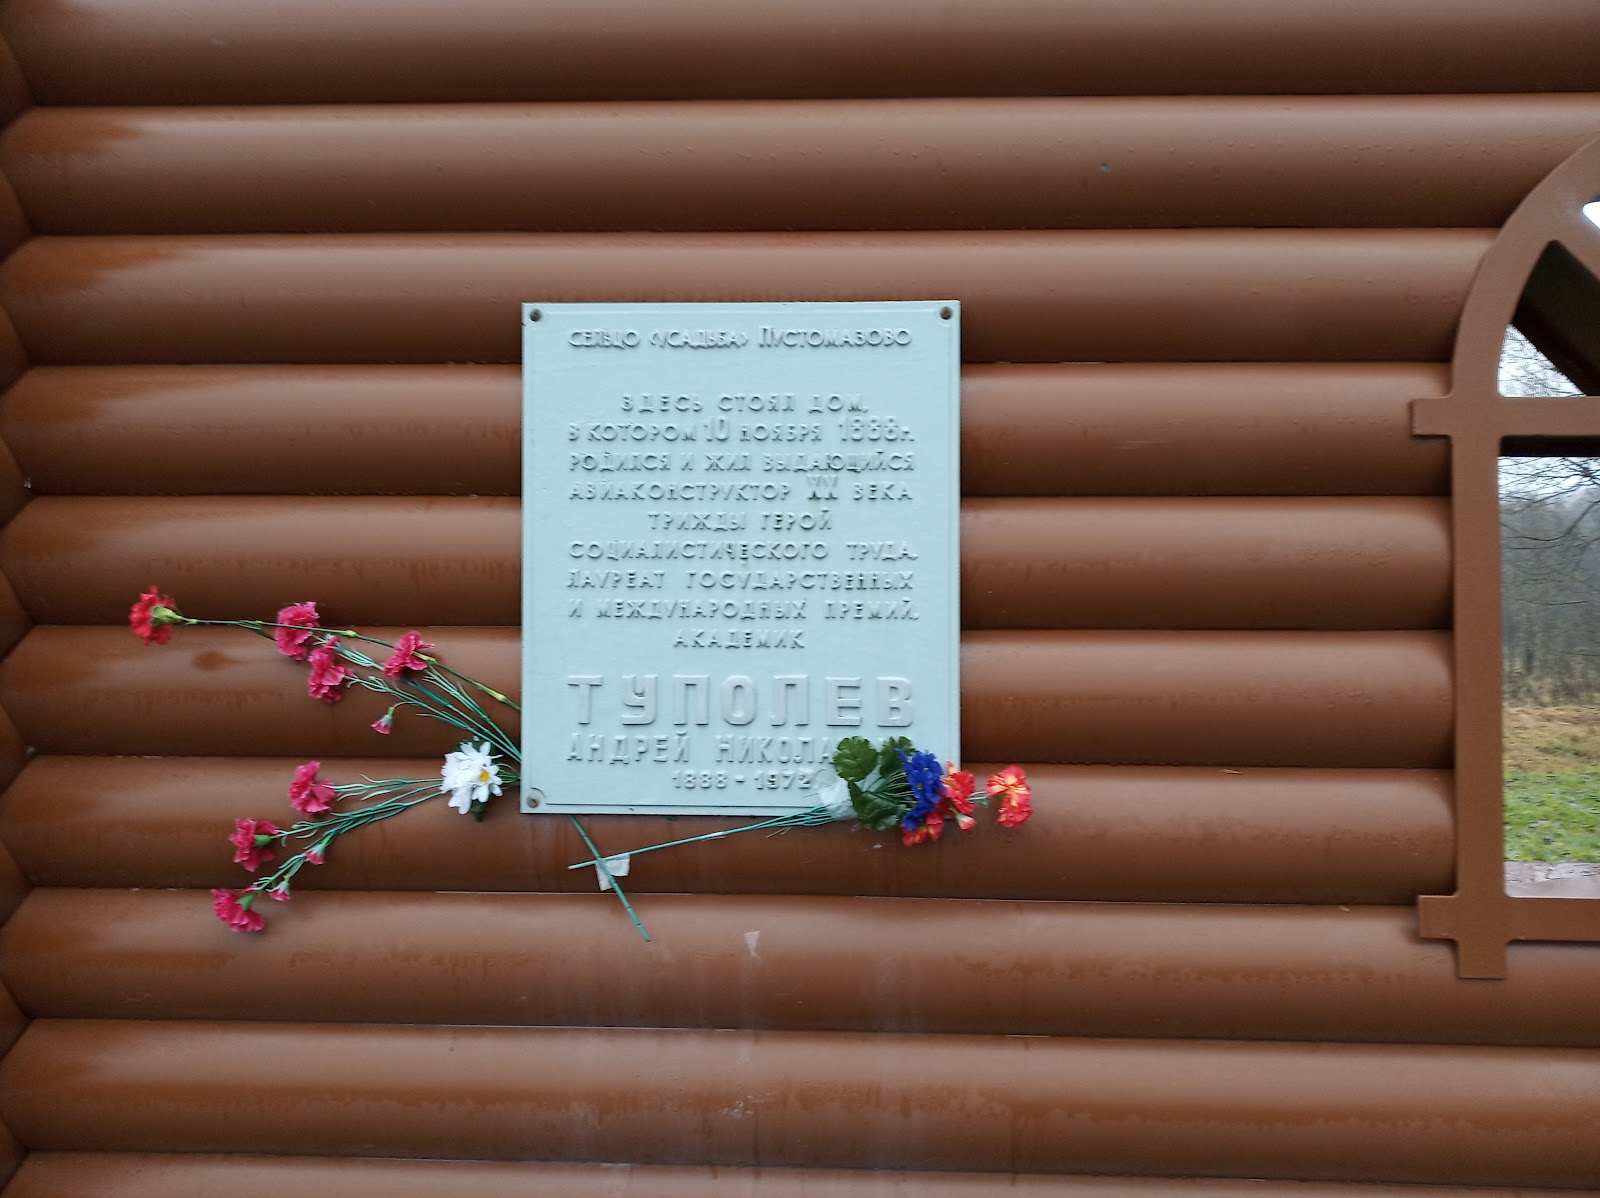 сельцо «усадьба» Пустомазово
ЗДЕСЬ СТОЯЛ ДОМ,
В КОТОРОМ 10 НОЯБРЯ 1888г.
РОДИЛСЯ И ЖИЛ ВЫДАЮЩИЙСЯ
АВИАКОНСТРУКТОР XX ВЕКА
ТРИЖДЫ ГЕРОЙ
СОЦИАЛИСТИЧЕСКОГО ТРУДА,
ЛАУРЕАТ ГОСУДАРСТВЕННЫХ
И МЕЖДУНАРОДНЫХ ПРЕМИЙ,
АКАДЕМИК
ТУПОЛЕВ
АНДРЕЙ НИКОЛА
1888 - 1972